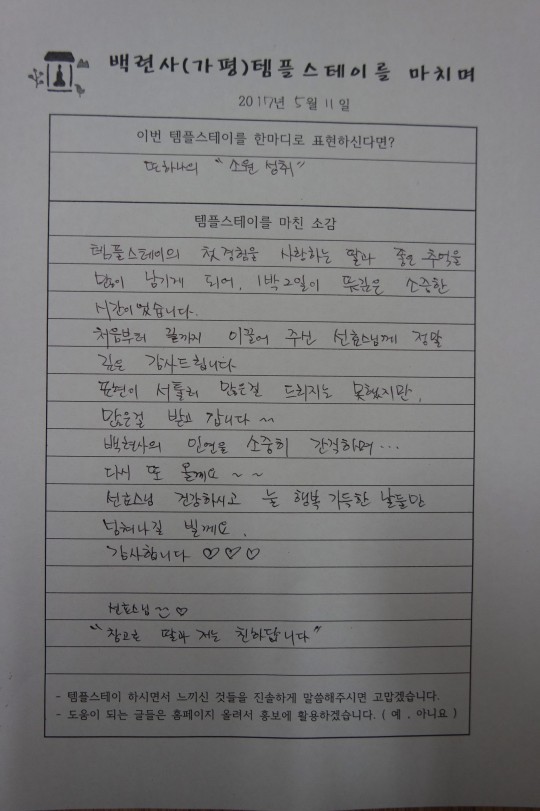 백련사(가평)템플스테이를 마치며
2017년 5월 11일
이번 템플스테이를 한마디로 표현하신다면?
또하나의 "소원 성취"
템플스테이를 마친 소감
템플스테이의 첫경험을 사랑하는 딸과 좋은 추억을
많이 남기게 되어, 1박2일이 뜻깊은 소중한
시간이었습니다.
처음부터 끝까지 이끌어 주신 선효스님께 정말
깊은 감사드립니다
표현이 서툴러 많은걸 드리지는 못했지만,
많은걸 받고 갑니다~
백련사의 인연을 소중히 간직하며...
다시 또 올께요 ~ ~
선효스님 건강하시고 늘 행복 가득한 날들만
넘쳐나길 빌께요.
감사합니다 ♡♡♡
선효스님 ♡
"참고로 딸과 저는 친하답니다"
- 템플스테이 하시면서 느끼신 것들을 진솔하게 말씀해주시면 고맙겠습니다.
- 도움이 되는 글들은 홈페이지 올려서 홍보에 활용하겠습니다. ( 예 . 아니요 )